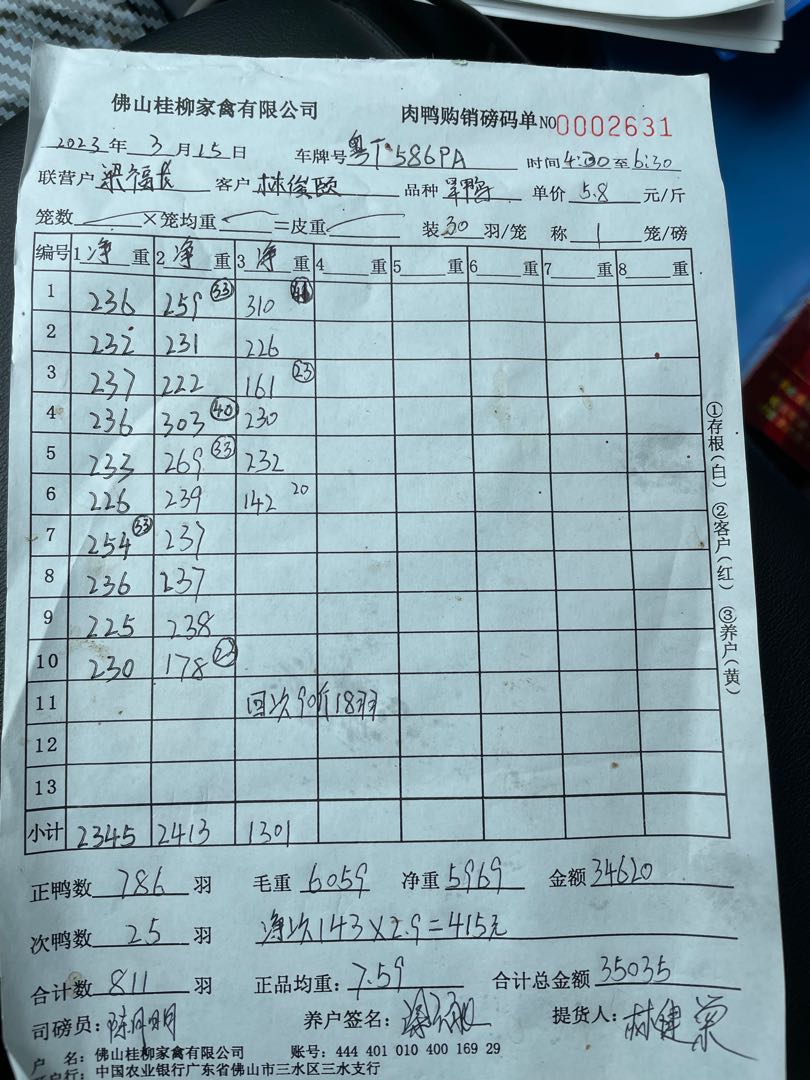 佛山桂柳家禽有限公司 肉鸭购销磅码单 NO 0002631
2023 年 3 月 15 日 车牌号 粤T·586PA 时间 4:30 至 6:30
联营户 梁福 客户 林俊颐 品种 单价 5.8 元/斤
笼数 ×笼均重 =皮重 装 30 羽/笼 称 1 笼/磅
编号 1 净 重 2 净 重 3 净 重 4 重 5 重 6 重 7 重 8 重
1 236 259 33 310
2 232 231 226
3 237 222 161 23
4 236 303 40 230
5 233 269 33 232
6 226 239 142 20
7 254 33 237
8 236 237
9 225 238
10 230 178
11 回次90斤18羽
12
13
小计 2345 2413 1301
正鸭数 786 羽 毛重 6059 净重 5969 金额 34620
次鸭数 25 羽 净次143×2.9=415元
合计数 811 羽 正品均重: 7.59 合计总金额 35035
司磅员: 陈 明 养户签名: 提货人: 林健荣
户 名: 佛山桂柳家禽有限公司 账号: 444 401 010 400 169 29
开户行: 中国农业银行广东省佛山市三水区三水支行
①存根(白) ②客户(红) ③养户(黄)